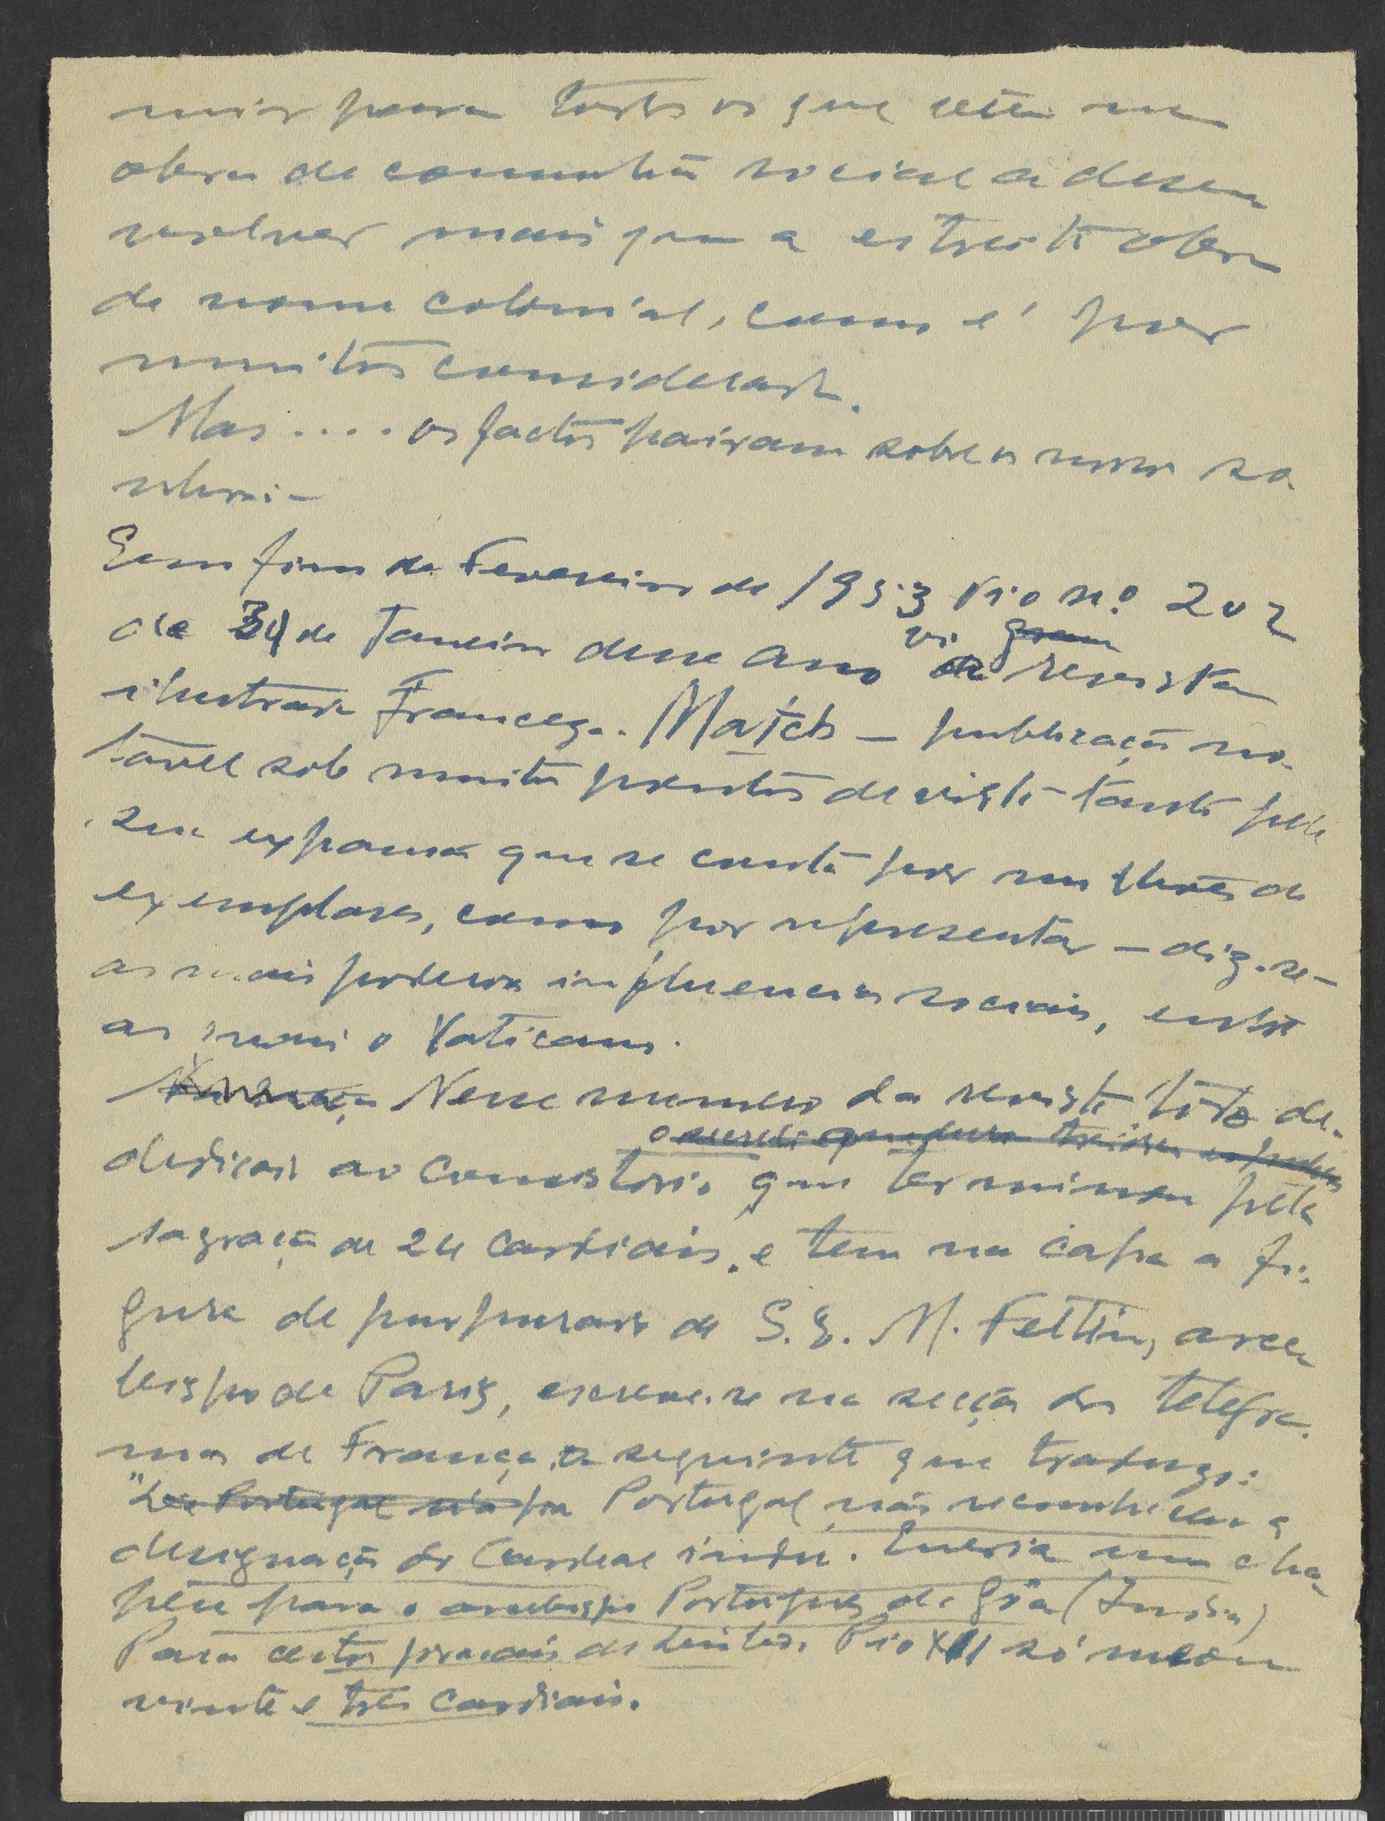 mior para todos os que vêem na
obra de comunhão social a desen
volver mais que a estreita obra
de nome colonial, como é por
muitos considerada.
Mas .... os factos pairam sobre o nosso so
Em fim de Fevereiro de 1953 Vi o n.º 202
de 31 de Janeiro desse ano da revista
ilustrada Franceza. Match — publicação no-
tavel sob muitos pontos de vista – tanto pela
sua expansão que se conta por milhões de
exemplares, como por representar — diz-se —
as mais poderosas influencias sociais, entre
as quais o Vaticano.
Nesse numero da revista todo de-
dedicado ao Consistorio que terminou pela
sagração de 24 Cardiais, e tem na capa a fi-
gura de purpurado de S. E. M. Feltin, arce
bispo de Paris, escreve-se na secção dos telegra-
mas de França, o seguinte que traduzo:
" Portugal não reconheceu a
designação do Cardeal indu. Queria um cha
péu para o arcebispo Português de Gôa (India)
Para certos Pio XII só nomeou
vinte e três Cardiais.